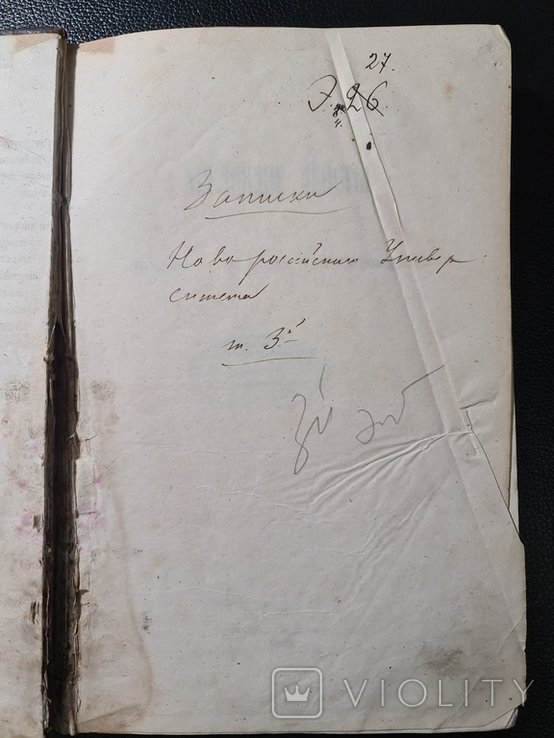 27.
Э. 26
4.
Записки
Новороссійскаго Универ
ситета
т. 3й
VIOLITY